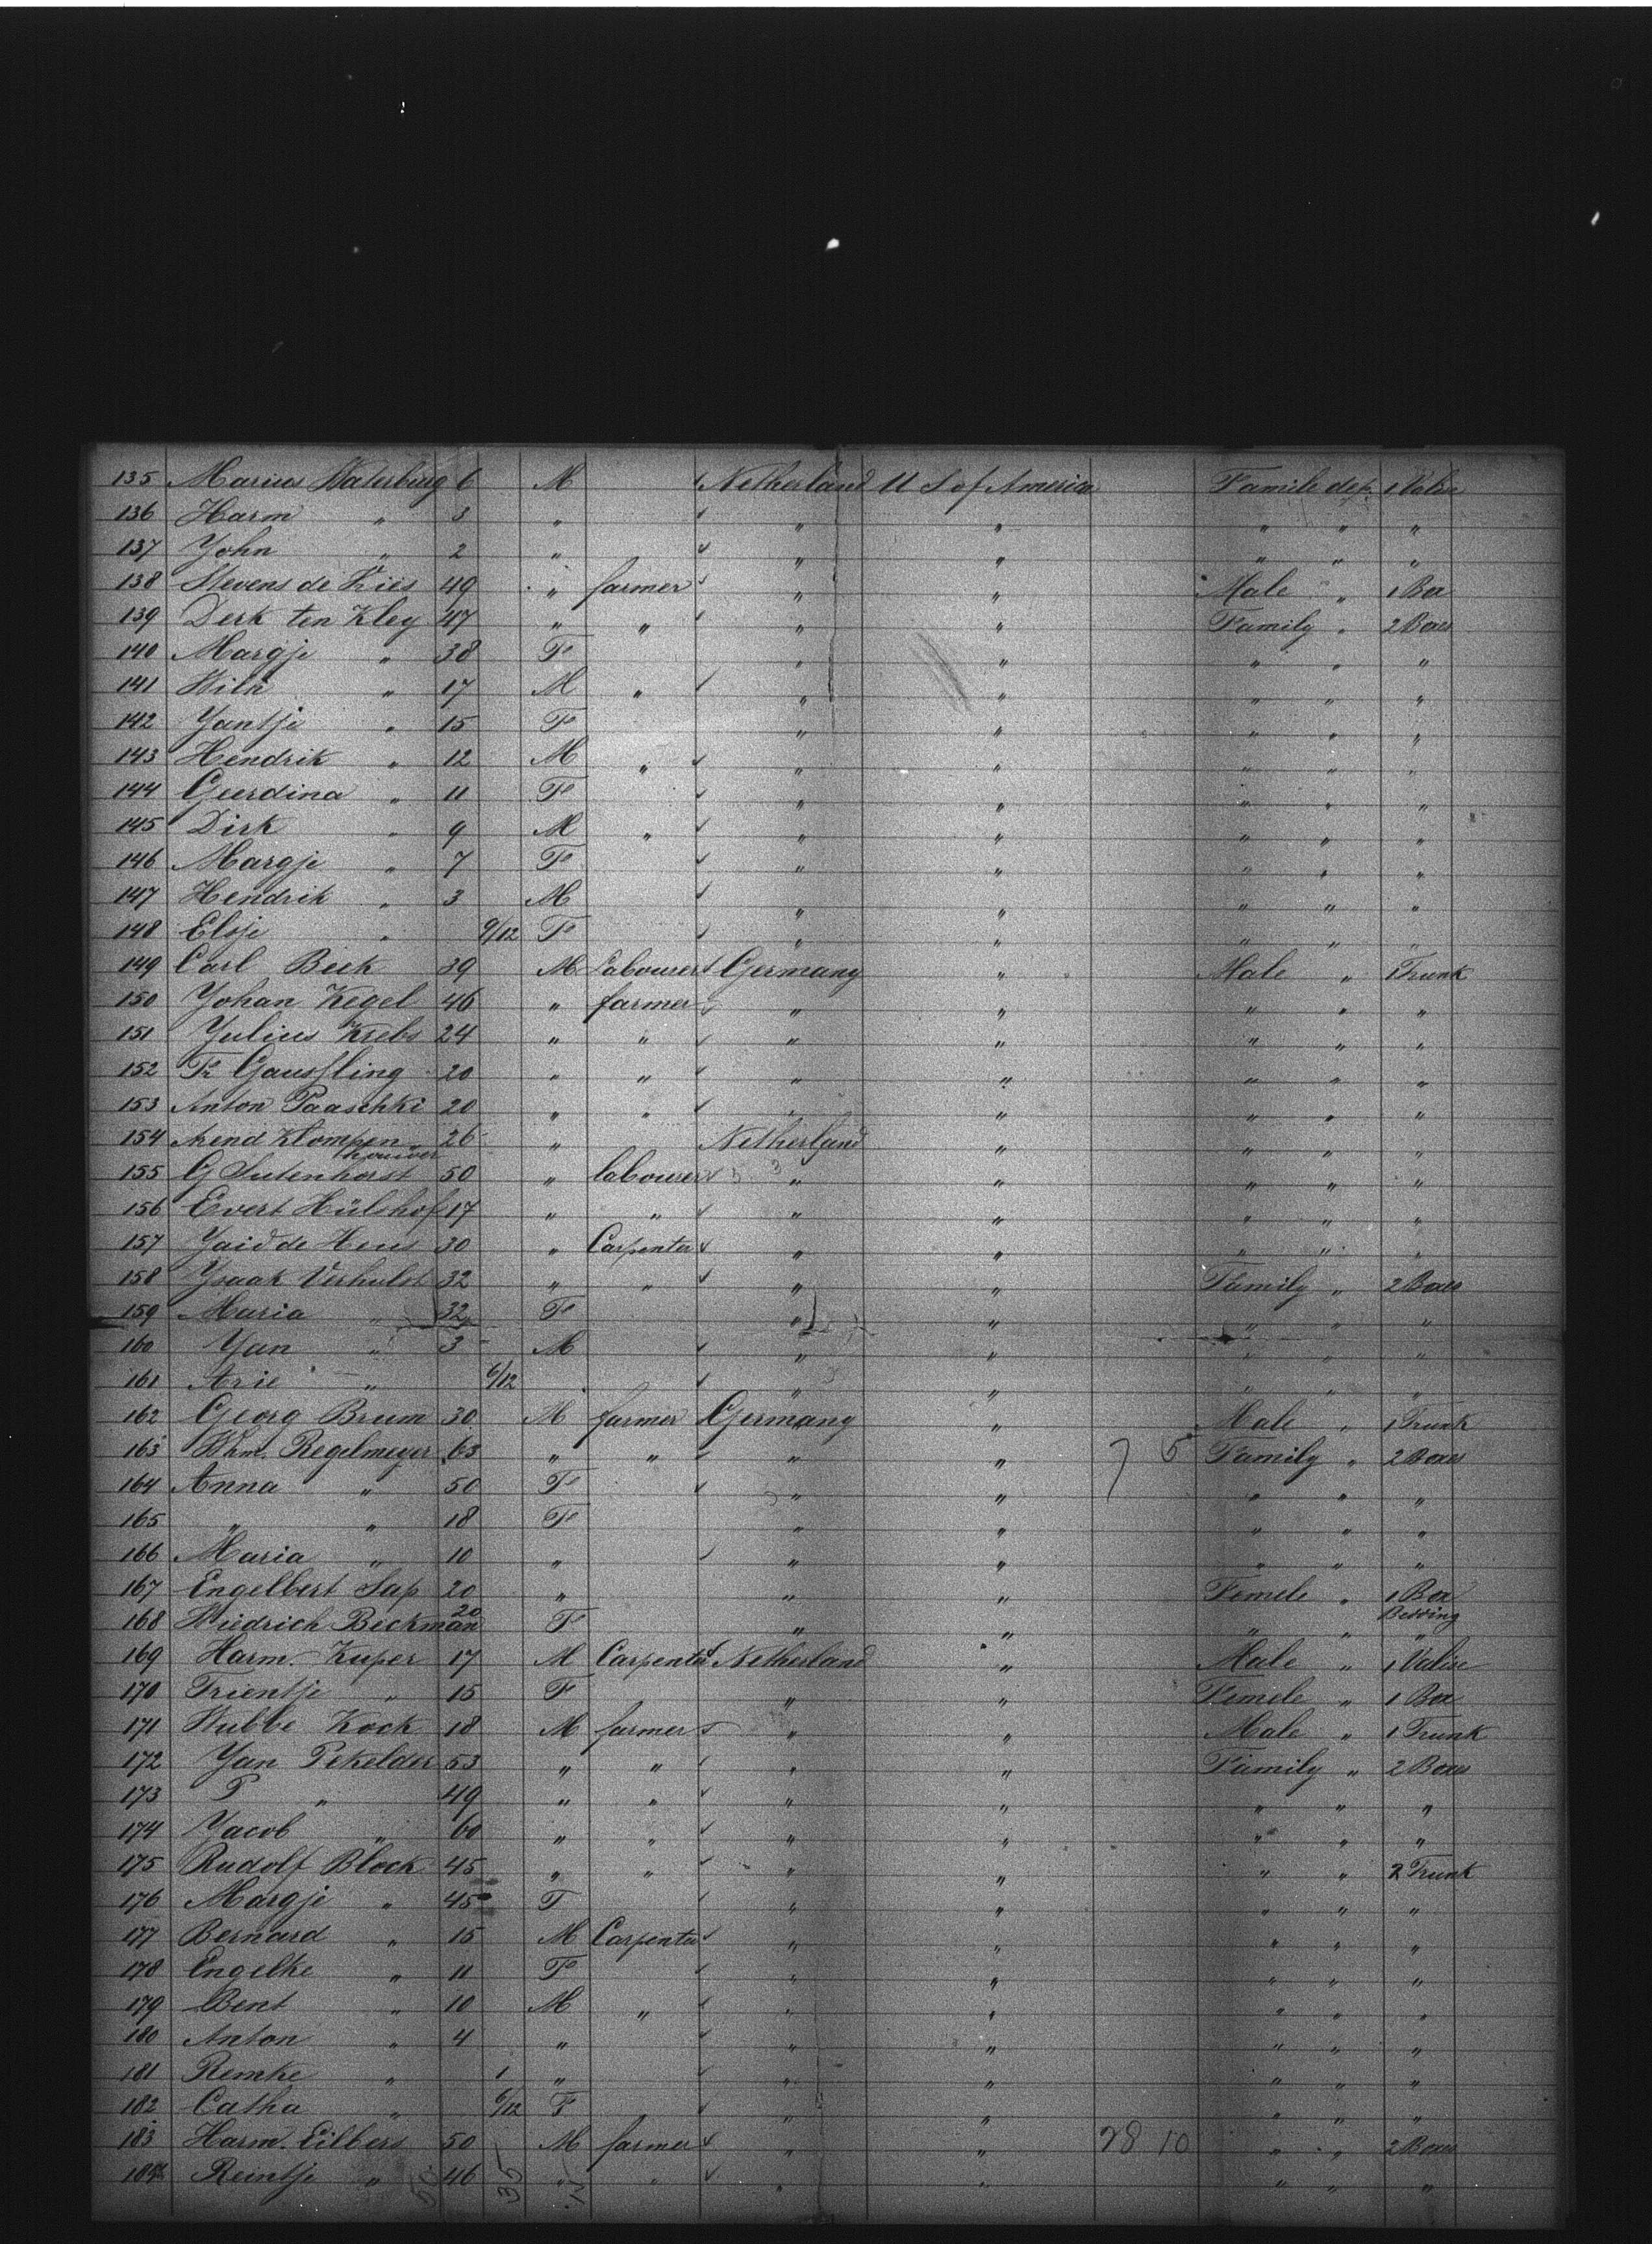 135 Marius Waterburg 6 M Netherland U S of America Famile dep. 1 Valise
136 Harm " 3 " " " " " "
137 Yohn " 2 " " " " " "
138 Stevens de Kies 49 " farmer " " Male " 1 Box
139 Derk ten Kley 47 " " " " Family " 2 Boxes
140 Margje " 38 F " " " " "
141 Wilh " 17 M " " " " " "
142 Yantje " 15 F " " " " "
143 Hendrik " 12 M " " " " " "
144 Geerdina " 11 F " " " " "
145 Dirk " 9 M " " " " " "
146 Margje " 7 F " " " " "
147 Hendrik " 3 M " " " " "
148 Elsje " 9/12 F " " " " "
149 Carl Beek 39 M Labourer Germany " Male " 1 Trunk
150 Yohan Kegel 46 " farmer " " " " "
151 Yulius Krebs 24 " " " " " " "
152 Fr Gaussling 20 " " " " " " "
153 Anton Paaschki 20 " " " " " " "
154 Arend Klompen " 26 " Netherland " " " "
houwer
155 G Sutenhorst 50 " labourer " " " " "
156 Evert Hülshof 17 " " " " " " "
157 de Heus 30 " Carpenter " " " " "
158 Ysaak Verhulst 32 " " " " Family " 2 Boxes
159 Maria " 32 F " " " " "
160 Yan " 3 M " " " " "
161 Arie " 6/12 " " " " "
162 Georg Brum 30 M farmer Germany " Male " 1 Trunk
163 Whm. Regelmeyer 63 " " " " 7 5 Family " 2 Boxes
164 Anna " 50 F " " " " "
165 " " 18 F " " " " "
166 Maria " 10 " " " " " "
167 Engelbert Sap 20 " " " Femele " 1 Box
Bedding
168 Wiedrich Beckman 20 F " " " " "
169 Harm. Kuper 17 M Carpenter Netherland " Male " 1 Valise
170 Trientje " 15 F " " Femele " 1 Box
171 Wubbe Kock 18 M farmer " " Male " 1 Trunk
172 Yan Pekelder 53 " " " " Family " 2 Boxes
173 P " 49 " " " " " " "
174 Yacob " 60 " " " " " " "
175 Rudolf Block 45 " " " " " " 2 Trunk
176 Margje " 45 F " " " " "
177 Bernard " 15 M Carpenter " " " " "
178 Engelke " 11 F " " " " "
179 Bent " 10 M " " " " " "
180 Anton " 4 " " " " " "
181 Remke " 1 " " " " " "
182 Catha " 6/12 F " " " " "
183 Harm. Eilbers 50 M farmer " " 28 10 " " 2 Boxes
184 Reintje " 46 " " " " " " "
35